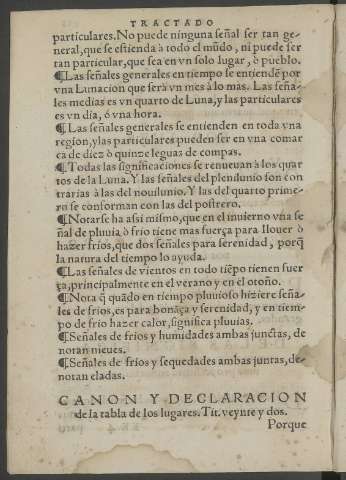 TRACTADO
particulares. No puede ninguna señal ser tan ge-
neral, que se estienda à todo el mũdo, ni puede ser
tan particular, que sea en vn solo lugar, ò pueblo.
¶ Las señales generales en tiempo se entiendẽ por
vna Lunacion que serà vn mes à lo mas. Las seña-
les medias es vn quarto de Luna, y las particulares
es vn dia, ó vna hora.
¶ Las señales generales se entienden en toda vna
region, y las particulares pueden ser en vna comar
ca de diez ò quinze leguas de compas.
¶ Todas las significaciones se renueuan à los quar
tos de la Luna. Y las señales del plenilunio son con
trarias à las del nouilunio. Y las del quarto prime-
ro se conforman con las del postrero.
¶ Notarse ha assi mismo, que en el inuierno vna se
ñal de pluuia ò frio tiene mas fuerça para llouer ò
hazer frios, que dos señales para serenidad, porq̃
la natura del tiempo lo ayuda.
¶ Las señales de vientos en todo tiẽpo tienen fuer
ça, principalmente en el verano y en el otoño.
¶ Nota q̃ quãdo en tiempo pluuioso hiziere seña-
les de frios, es para bonãça y serenidad, y en tiem-
po de frio hazer calor, significa pluuias.
¶ Señales de frios y humidades ambas junctas, de-
notan nieues.
¶ Señales de frios y sequedades ambas juntas, de-
notan eladas.
CANON Y DECLARACION
de la tabla de los lugares. Tit. veynte y dos.
Porque